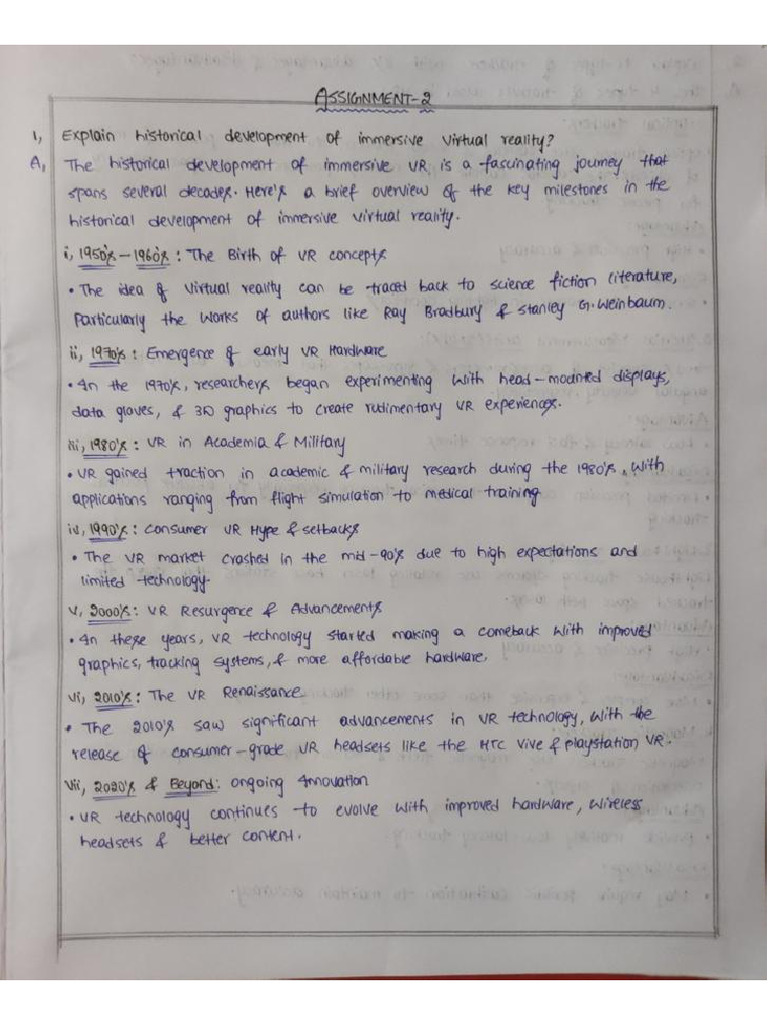 ASSIGNMENT-2
1, Explain historical development of immersive virtual reality?
A, The historical development of immersive VR, is a fascinating journey that
spans several decades. Here's a brief overview of the key milestones in the
historical development of immersive virtual reality.
i, 1950's - 1960's : The Birth of VR concepts
• The idea of virtual reality can be traced back to science fiction literature,
Particularly the works of authors like Ray Bradbury & Stanley G. Weinbaum.
ii, 1970's : Emergence of early VR Hardware
• In the 1970's, researchers began experimenting with head-mounted displays,
data gloves, & 3D graphics to create rudimentary VR experiences.
iii, 1980's : VR in Academia & Military
• VR gained traction in academic & military research during the 1980's, with
applications ranging from flight simulation to medical training
iv, 1990's : Consumer VR Hype & setbacks
• The VR market crashed in the mid-90's due to high expectations and
limited technology.
v, 2000's : VR Resurgence & Advancements
• In these years, VR technology started making a comeback with improved
graphics, tracking systems, & more affordable hardware.
vi, 2010's : The VR Renaissance
• The 2010's saw significant advancements in VR technology, with the
release of consumer-grade VR headsets like the HTC Vive & playstation VR.
vii, 2020's & Beyond : ongoing Innovation
• VR technology continues to evolve with improved hardware, wireless
headsets & better content.